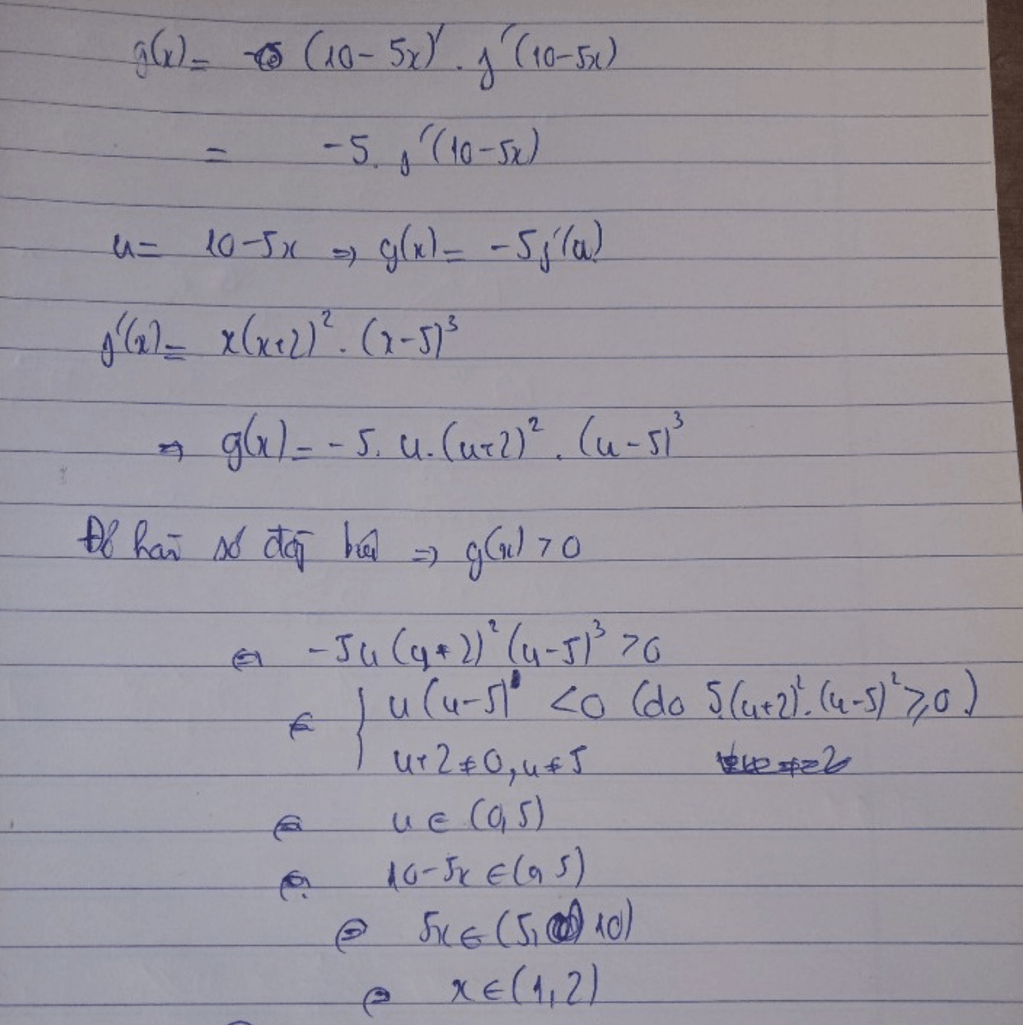 g(x) = (10 - 5x)' . f'(10-5x)
= -5. f'(10-5x)
u = 10-5x ⇒ g(x) = -5f'(u)
f'(x) = x(x+2)². (x-5)³
⇒ g(x) = -5. u.(u+2)². (u-5)³
Để hàm số đồng biến ⇒ g(x) > 0
⇔ -5u(u+2)²(u-5)³ > 0
⇔ { u(u-5) < 0 (do 5(u+2)².(u-5)² ≥ 0)
u+2 ≠ 0, u ≠ 5
⇔ u ∈ (0,5)
⇔ 10-5x ∈ (0,5)
⇔ 5x ∈ (5, 10)
⇔ x ∈ (1,2)